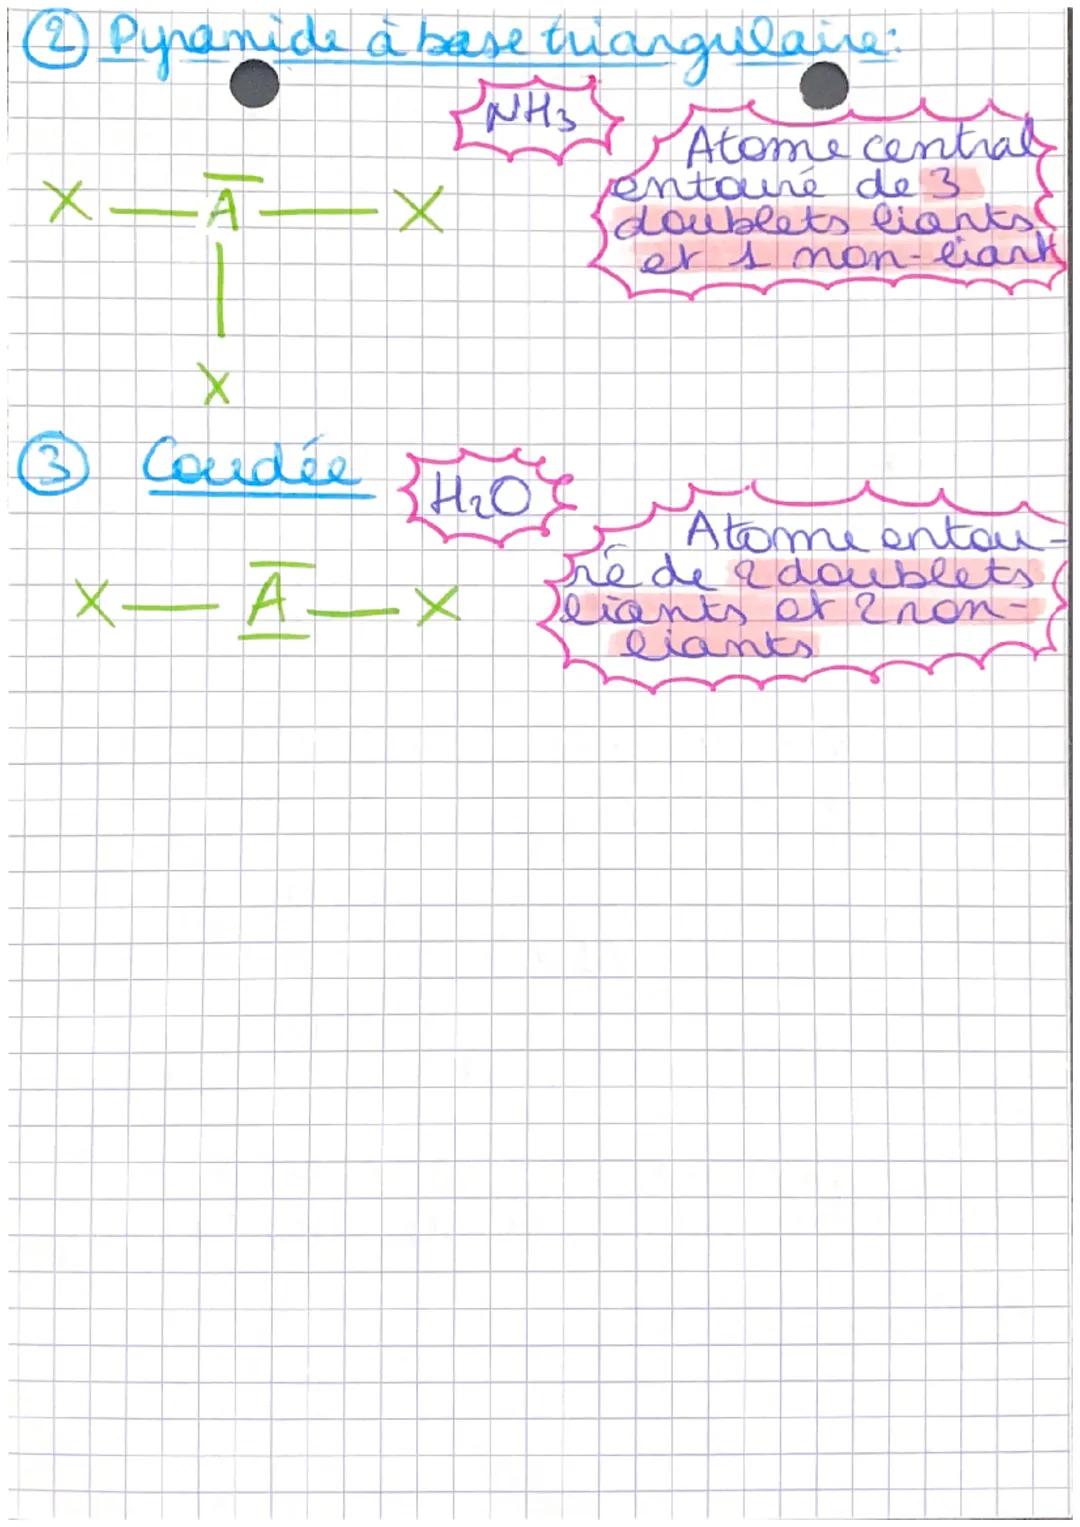 ② Pyramide à base triangulaire:
NH₃
Atome central
entouré de 3
doublets liants
et 1 non-liant
X — A — X
X
③ Coudée
H₂O
Atome entou-
ré de 2 doublets
liants et 2 non-
liants
X — A — X